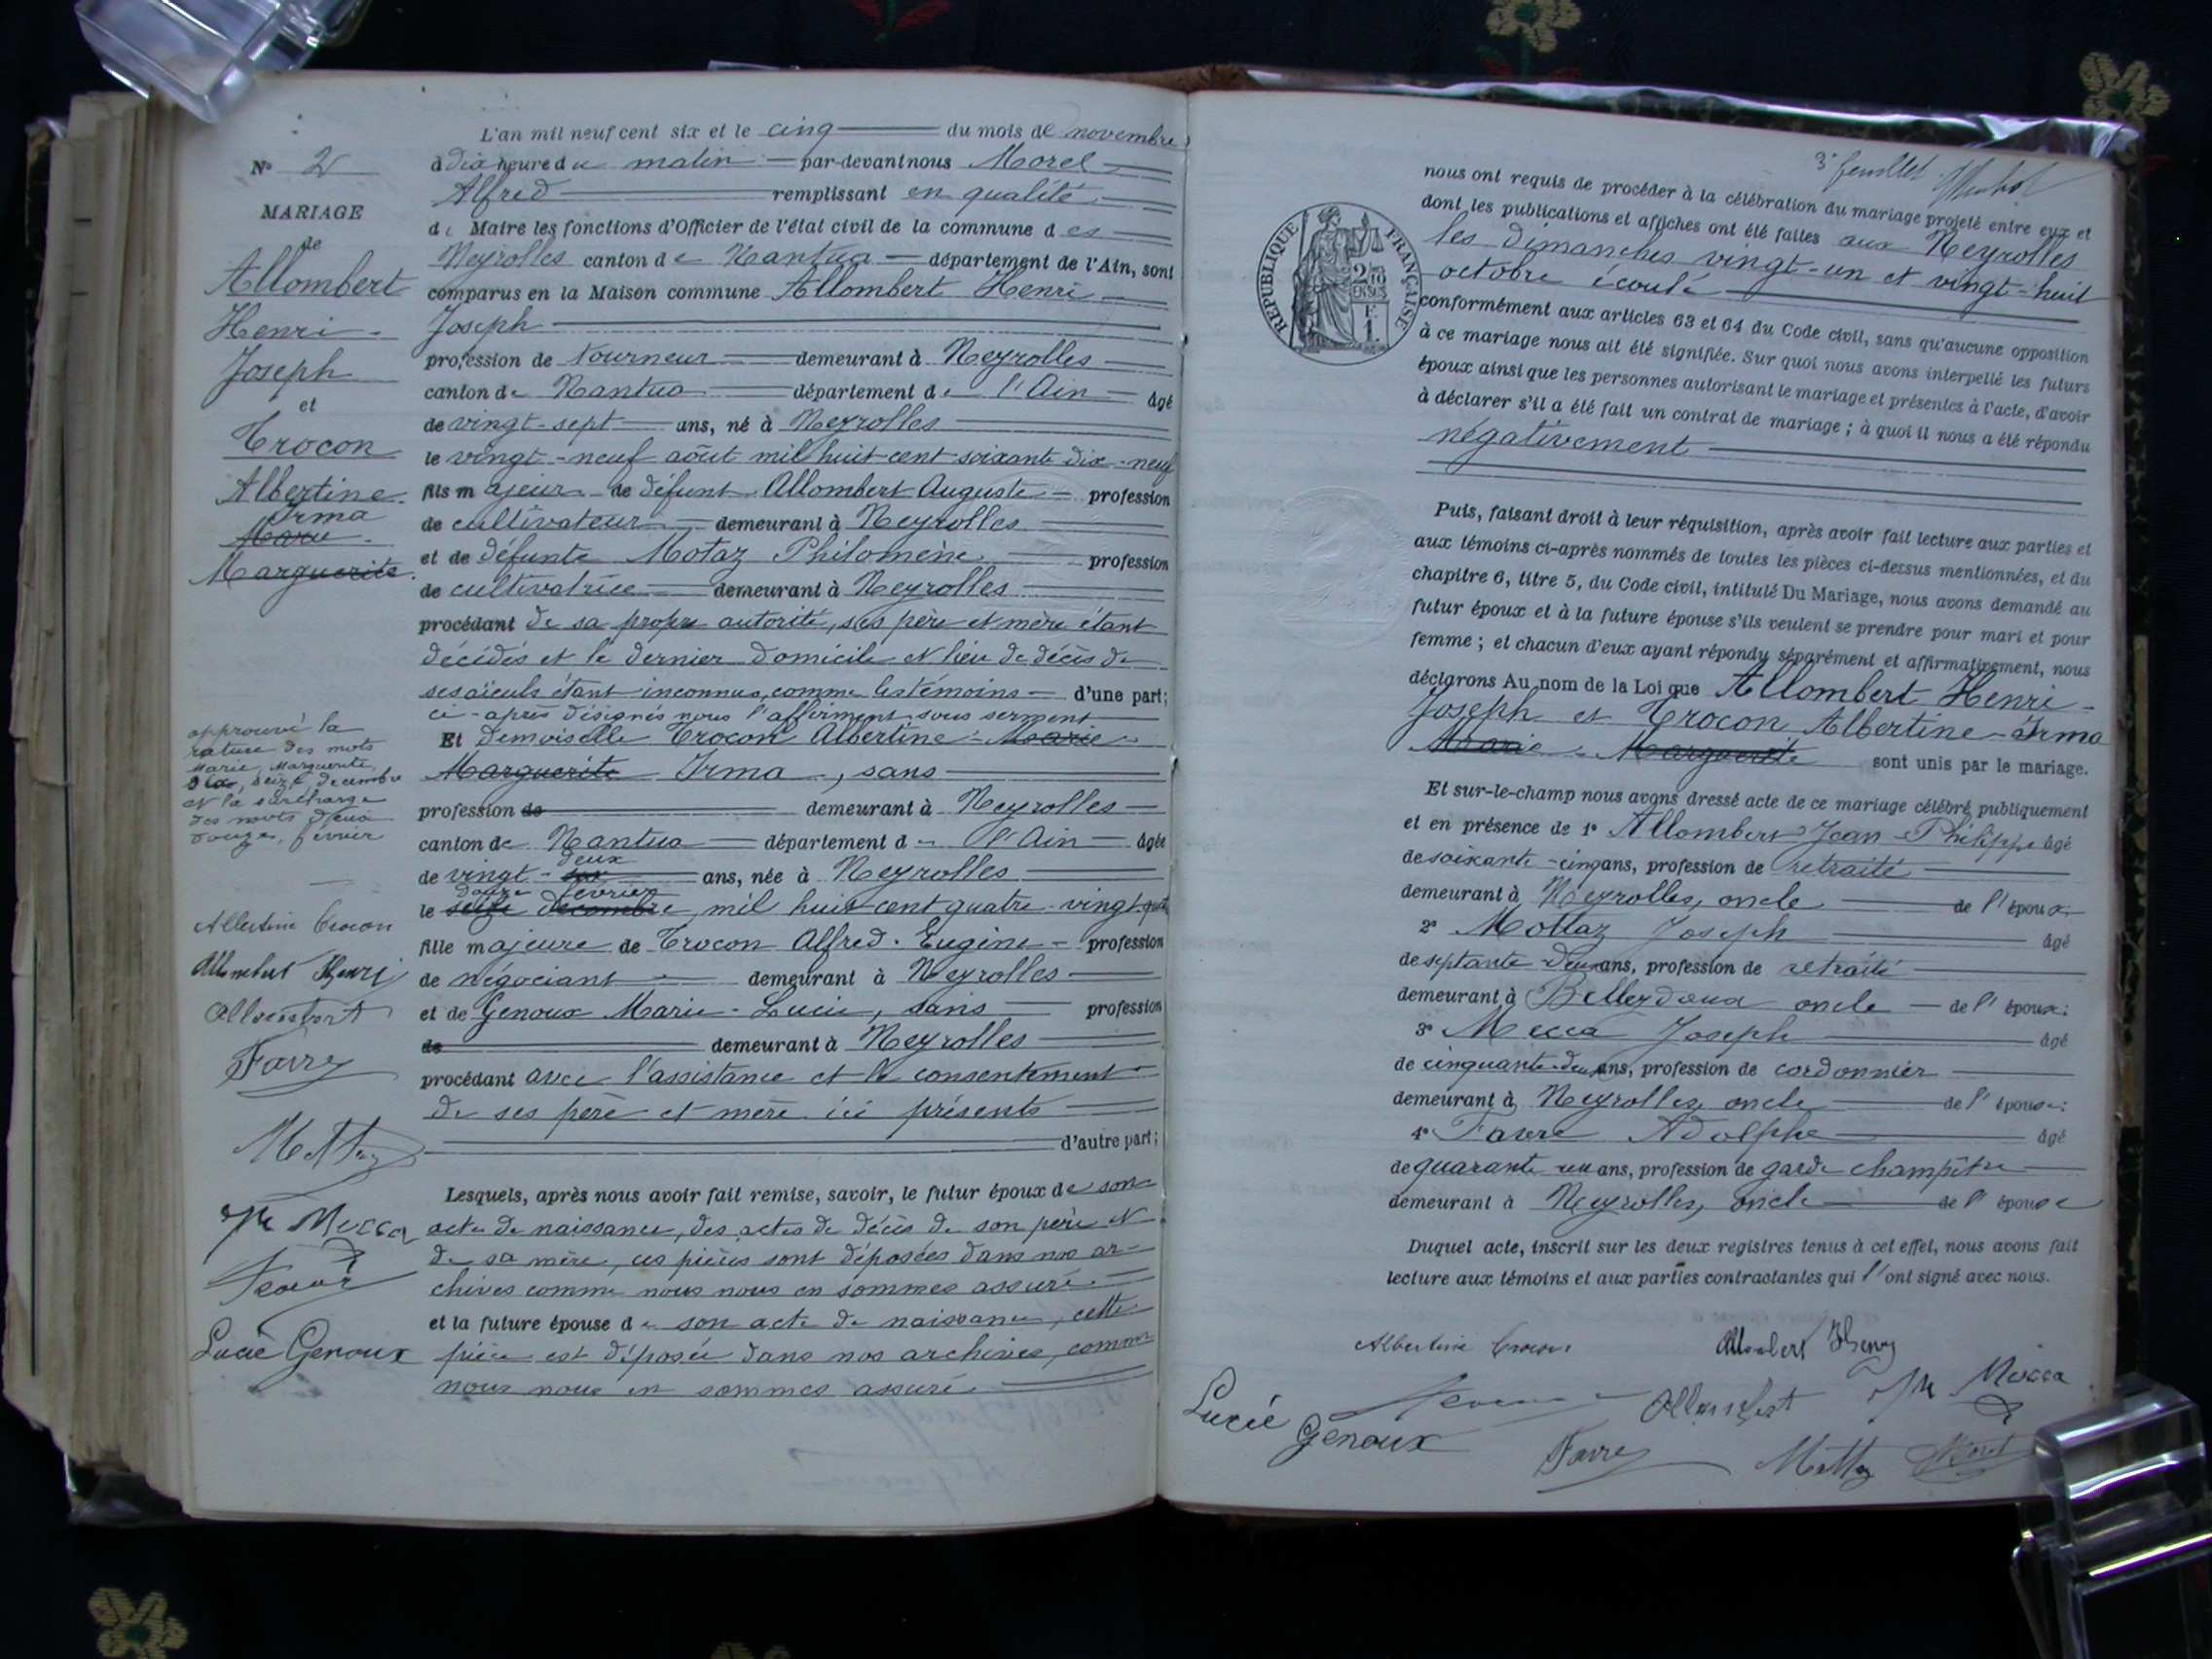 L'an mil neuf cent six et le cinq du mois de novembre
à dix heure du matin par-devant nous Morel
Alfred remplissant en qualité
de Maire les fonctions d'Officier de l'état civil de la commune des
Neyrolles canton de Nantua département de l'Ain, sont
comparus en la Maison commune Allombert Henri
Joseph
profession de tourneur demeurant à Neyrolles
canton de Nantua département de l'Ain âgé
de vingt-sept ans, né à Neyrolles
le vingt-neuf août mil huit cent soixante dix-neuf
fils majeur de défunt Allombert Auguste profession
de cultivateur demeurant à Neyrolles
et de défunte Motaz Philomène profession
de cultivatrice demeurant à Neyrolles
procédant de sa propre autorité, ses père et mère étant
décédés et le dernier domicile et lieu de décès de
ses aïeuls étant inconnus, comme les témoins d'une part;
ci-après désignés nous l'affirment sous serment
Et demoiselle Crocon Albertine Marie
Marguerite Irma, sans
profession de demeurant à Neyrolles
canton de Nantua département de l'Ain âgée
deux
de vingt-six ans, née à Neyrolles
douze février
le seize decembre mil huit cent quatre-vingt-quatre
fille majeure de Crocon Alfred-Eugène profession
de négociant demeurant à Neyrolles
et de Genoux Marie-Lucie, sans profession
de demeurant à Neyrolles
procédant avec l'assistance et le consentement
de ses père et mère ici présents
d'autre part;
Lesquels, après nous avoir fait remise, savoir, le futur époux de son
acte de naissance, des actes de décès de son père et
de sa mère, ces pièces sont déposées dans nos ar-
chives comme nous nous en sommes assuré
et la future épouse de son acte de naissance, cette
pièce est déposée dans nos archives, comme
nous nous en sommes assuré
N° 2
MARIAGE
de
Allombert
Henri
Joseph
et
Crocon
Albertine
Irma
Marie
Marguerite
approuvé la
rature des mots
Marie, Marguerite,
six, seize, decembre
et la surcharge
des mots deux
douze, février
Albertine Crocon
Allombert Henri
Allombert
Favre
Mottaz
Mecca
Lucie Genoux
3e feuillet
nous ont requis de procéder à la célébration du mariage projeté entre eux et
dont les publications et affiches ont été faites aux Neyrolles
les dimanches vingt-un et vingt-huit
octobre écoulé
conformément aux articles 63 et 64 du Code civil, sans qu'aucune opposition
à ce mariage nous ait été signifiée. Sur quoi nous avons interpellé les futurs
époux ainsi que les personnes autorisant le mariage et présentes à l'acte, d'avoir
à déclarer s'il a été fait un contrat de mariage ; à quoi il nous a été répondu
négativement
RÉPUBLIQUE FRANÇAISE
Puis, faisant droit à leur réquisition, après avoir fait lecture aux parties et
aux témoins ci-après nommés de toutes les pièces ci-dessus mentionnées, et du
chapitre 6, titre 5, du Code civil, intitulé Du Mariage, nous avons demandé au
futur époux et à la future épouse s'ils veulent se prendre pour mari et pour
femme ; et chacun d'eux ayant répondu séparément et affirmativement, nous
déclarons Au nom de la Loi que Allombert Henri-
Joseph et Crocon Albertine-Irma
Marie-Marguerite sont unis par le mariage.
Et sur-le-champ nous avons dressé acte de ce mariage célébré publiquement
et en présence de 1° Allombert Jean-Philippe âgé
de soixante-cinq ans, profession de retraité
demeurant à Neyrolles, oncle de l'époux
2° Mottaz Joseph âgé
de septante deux ans, profession de retraité
demeurant à Belleydoux oncle de l'époux;
3° Mecca Joseph âgé
de cinquante-deux ans, profession de cordonnier
demeurant à Neyrolles, oncle de l'épouse;
4° Favre Adolphe âgé
de quarante un ans, profession de garde champêtre
demeurant à Neyrolles, oncle de l'épouse
Duquel acte, inscrit sur les deux registres tenus à cet effet, nous avons fait
lecture aux témoins et aux parties contractantes qui l'ont signé avec nous.
Albertine Crocon Allombert Henry
Lucie Genoux Allombert Mecca
Favre Mottaz Morel